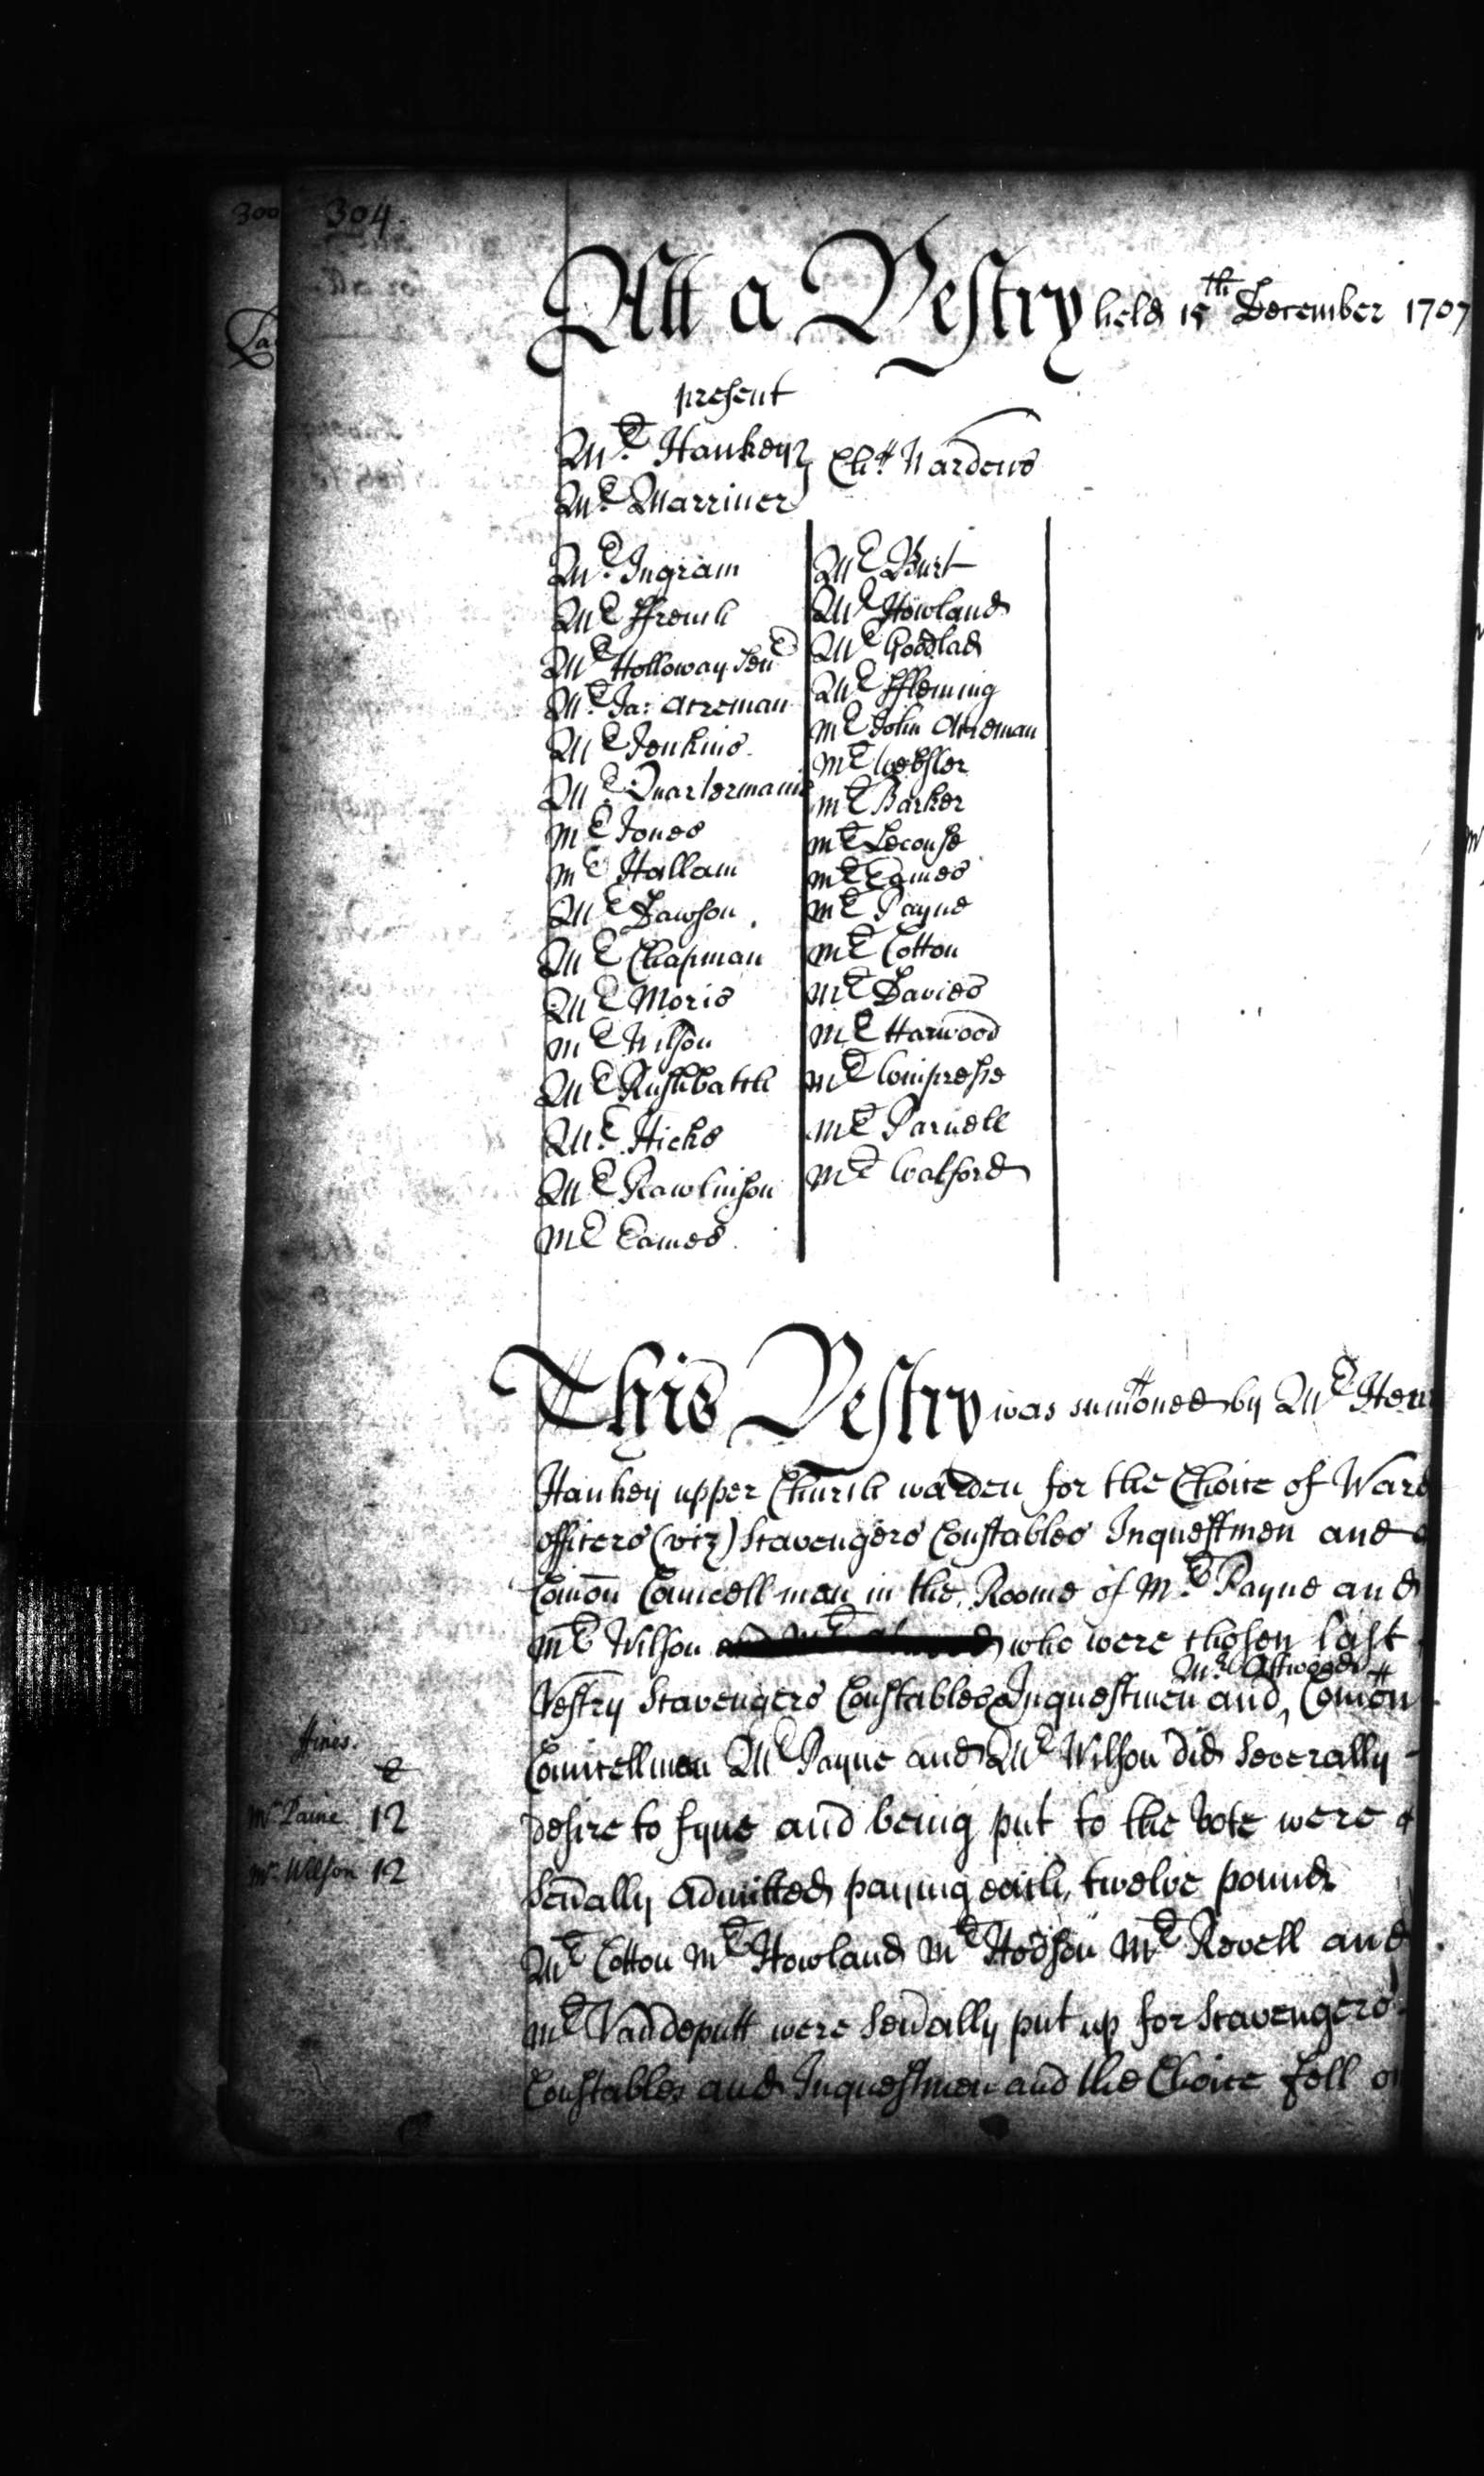 300
304.
Att a Vestry held 15th December 1707
present
Mr. Hankey
Mr. Marriner
Chh Wardens
Mr. Ingram
Mr ffrench
Mr Holloway Senr
Mr. Ja: Acreman
Mr Jenkins
Mr. Quartermaine
Mr Jones
Mr Hallam
Mr Dawson
Mr Chapman
Mr Moris
Mr Wilson
Mr Rushbatch
Mr. Hicks
Mr Rawlinson
Mr Eames
Mr Burt
Mr Howland
Mr Goodlad
Mr ffleming
Mr John Acreman
Mr Webster
Mr Barker
Mr Lecouse
Mr Eames
Mr Payne
Mr Cotton
Mr Davies
Mr Harwood
Mr Compresse
Mr Parnell
Mr Walford
This Vestry was sumoned by Mr Hen
Hankey upper Church warden for the Choice of Ward
officers (viz) Scavengers Constables Inquestmen and
Comon Councellmen in the Roome of Mr Payne and
Mr Wilson who were chosen last
Vestry Scavengers Constables & Inquestmen and Mr. Attwood Comon
Councellmen Mr Payne and Mr Wilson did Severally
desire to fyne and being put to the Vote were
Sevally admitted paying each twelve pound
Mr Cotton Mr Howland Mr Hodson Mr Revell and
Mr Vandeputt were Sevally put up for Scavengers
Constables and Inquestmen and the Choice fell on
ffines.
£
Mr Paine 12
Mr. Wilson 12